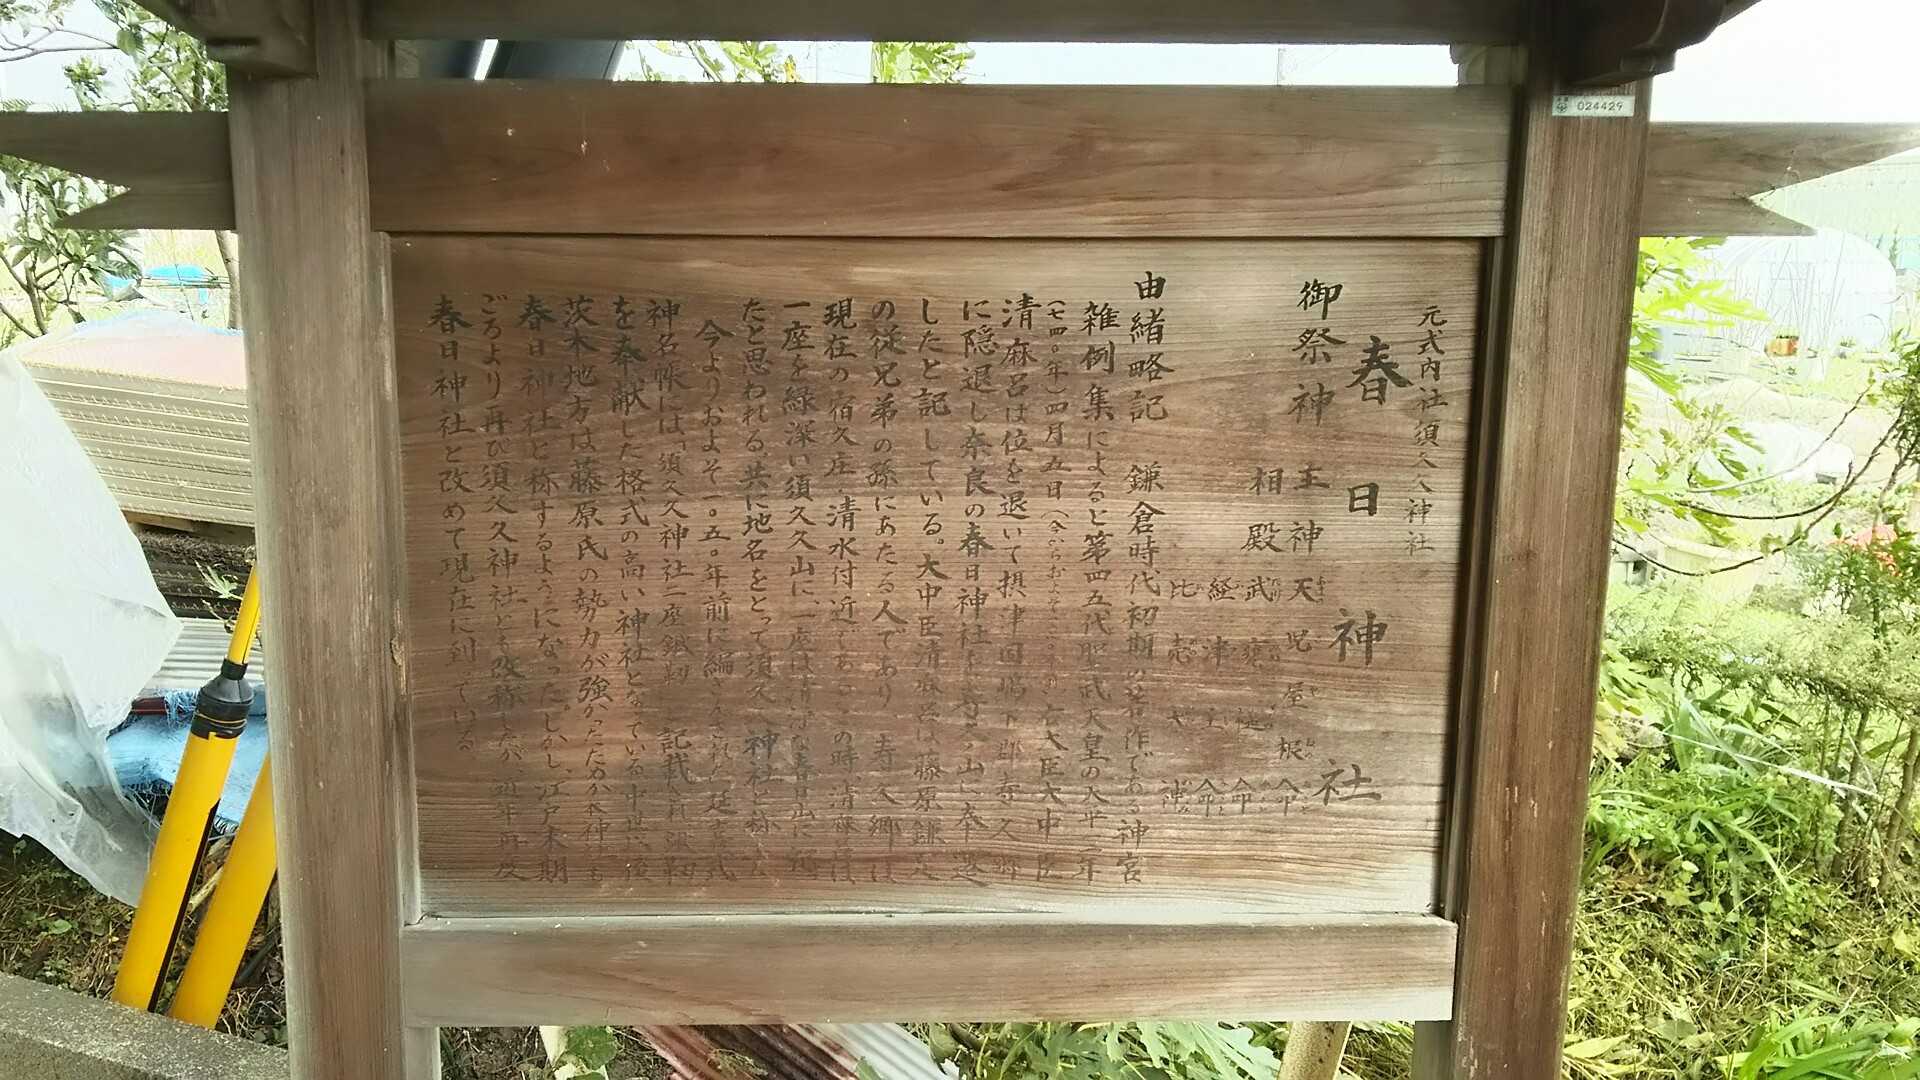 元式内社須久久神社
春日神社
御祭神 主神 天児屋根命
相殿 武甕槌命
経津主命
比売神
由緒略記 鎌倉時代初期の著作である神宮
雑例集によると第四五代聖武天皇の天平
(七四〇年)四月五日(今からおよそ 右大臣大中臣
清麻呂は位を退いて摂津国嶋下郡寿久郷
に隠退し奈良の春日神社を 山に奉遷
したと記している。大中臣清麻呂は藤原鎌足
の従兄弟の孫にあたる人であり、寿久郷は
現在の宿久庄、清水付近である。この時、清麻呂は、
一座を緑深い須久久山に、一座は清浄な春日山に
たと思われる。共に地名をとって須久久神社と称した
今よりおよそ一〇五〇年前に編さんされた延喜式
神名帳には、須久久神社二座 記載
を奉献した格式の高い神社となっている。中世以後
茨木地方は藤原氏の勢力が強かったため
春日神社と称するようになった。しかし、江戸末期
ごろより再び須久久神社と改称したが、近年再度
春日神社と改めて現在に到っている。
024429